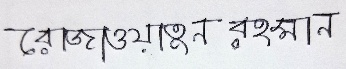 রেজাওয়ানুল রহমান